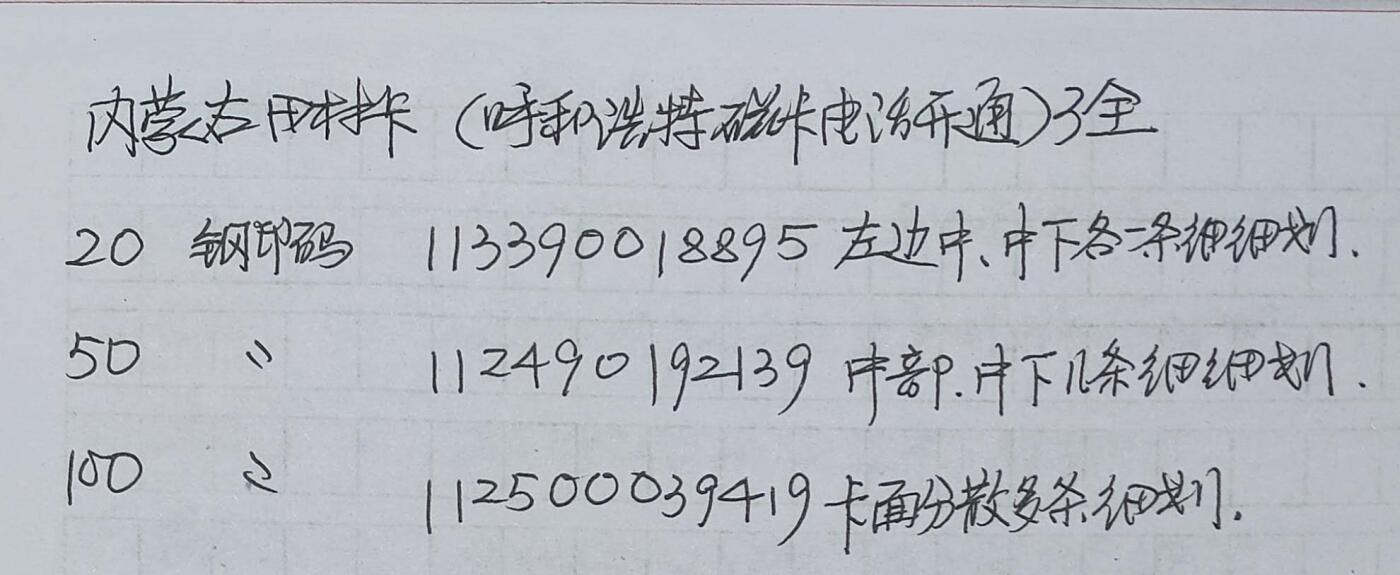 内蒙古田村卡（呼和浩特磁卡电话开通）3全
20 钢印码 113390018895 左边中、中下各一条细细划.
50 〃 112490192139 中部.中下几条细细划.
100 〃 112500039419 卡面分散多条细划.